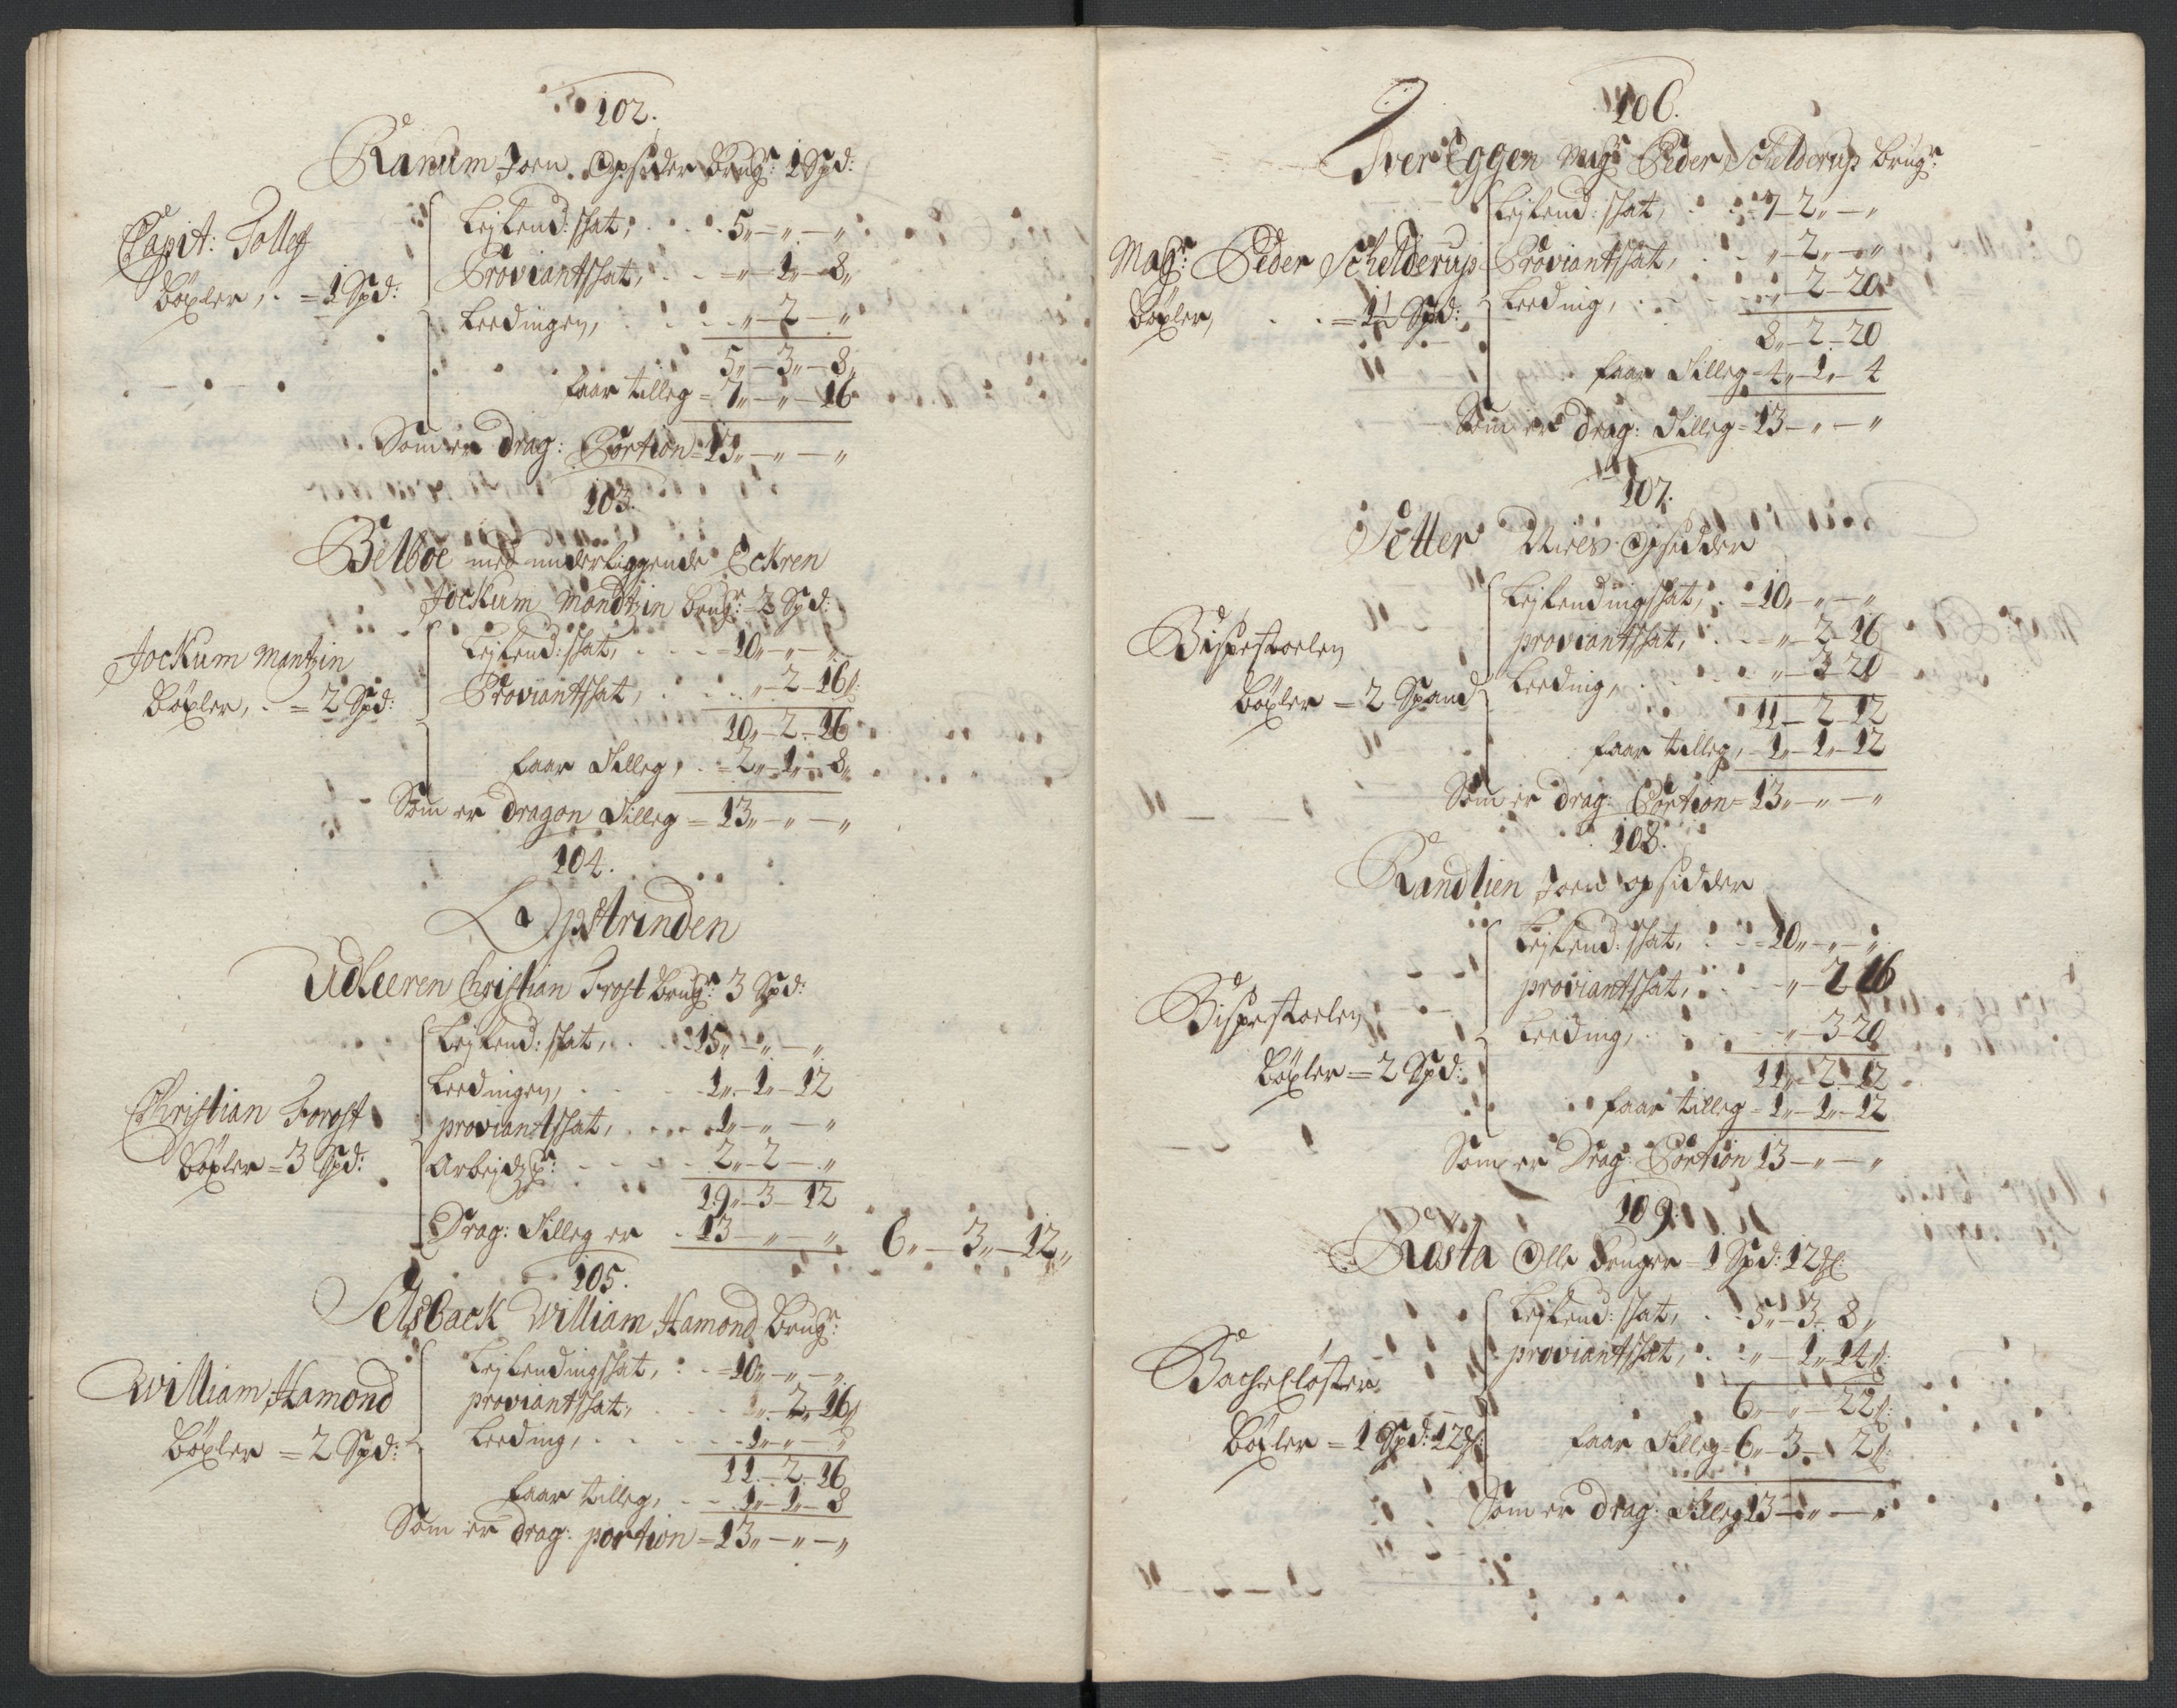 102.
Ranum Joen Opsider brugr: 1 Spd:
Capit: Tolle
böxler, . = 1 Spd:
Lejlend: skat, . . . 5„ — „ — „
Proviantskat, . . „ — 1„ — 8„
Leedingen, . . . „ — 2 — „
5„ — 3„ — 8„
faar tilleg = 7„ — „ — 16
Som er drag: Portion = 13„ — „ — „
103.
Belboe med underliggende Eckren
Jockum Mandtzin brugr: = 2 Spd:
Jockum Mantzin
böxler, . = 2 Spd:
Lejlend: skat, . . . = 10„ — „ — „
Proviantskat, . . . „ — 2 — 16 s:
10„ — 2 — 16
faar Tilleg, . = 2„ — 1„ — 8„
Som er dragon Tilleg = 13„ — „ — „
104.
Opstrinden
Udleeren Christian Frost brugr: 3 Spd:
Christian Forost
böxler = 3 Spd:
Lejlend: skat, . . . 15„ — „ — „
Leedingen, . . . 1„ — 1 — 12
proviantskat, . . . 1 — „ — „
Arbejdz . . . 2„ — 2 — „
19„ — 3 — 12
Drag: Tilleg er . 13 — „ — „ 6„ — 3„ — 12„
105.
Selsback William Hamond brugr:
William Hamond
böxler = 2 Spd:
Lejlendingsskat, . . = 10„ — „ — „
proviantskat, . . . „ — 2„ 16 s
Leeding, . . . 1„ — „ — „
11 — 2 — 16
faar tilleg, . . 1„ — 1„ — 8
Som er drag: portion = 13„ — „ — „
106.
Iver Eggen Magr Peder Schelderup brugr:
Magr: Peder Schelderup
böxler, . . = 1½ Spd:
Lejlend: skat, . . = 7 — 2„ — „
Proviantskat, . . „ — 2„ — „
Leeding, . . . „ — 2 — 20
8„ — 2 — 20
faar Tilleg = 4„ — 1„ — 4
Som er drag: Tilleg = 13 — „ — „
107.
Setter Niels Opsidder
Bispestoelen
böxler = 2 Spand
Lejlendingskat, . = 10„ — „ — „
proviantskat, . . . „ — 2 — 16
Leeding, . . . „ — 3 — 20
11 — 2 — 12
faar tilleg, — 1„ — 1„ — 12
Som er drag: Portion = 13„ — „ — „
108.
Randlien Joen opsidder
Bispestoelen
böxler = 2 Spd:
Lejlend: skat, . . = 10„ — „ — „
proviantskat, . . . „ — 2 16
Leeding, . . . „ — 3 20
11„ — 2 — 12
faar tilleg = 1„ — 1„ — 12
Som er Drag: Portion 13 — „ — „
109.
Rosta Olle bruger = 1 Spd: 12
Bache Closter
böxler = 1 Spd: 12
Lejlend: skat, . . 5„ — 3 — 8„
proviantskat, . . „ — 1„ 14 s:
6„ — „ — 22 s:
faar Tilleg = 6„ — 3 — 2 s:
Som er drag: Tilleg 13 — „ — „